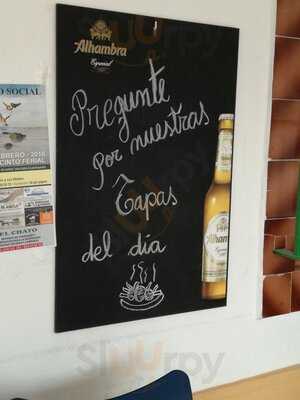 Alhambra
Especial
Pregunte
Por nuestras
Tapas
del día
Alhambra
O SOCIAL
BRERO - 2016
CINTO FERIAL
EL CHATO
Sluurpy